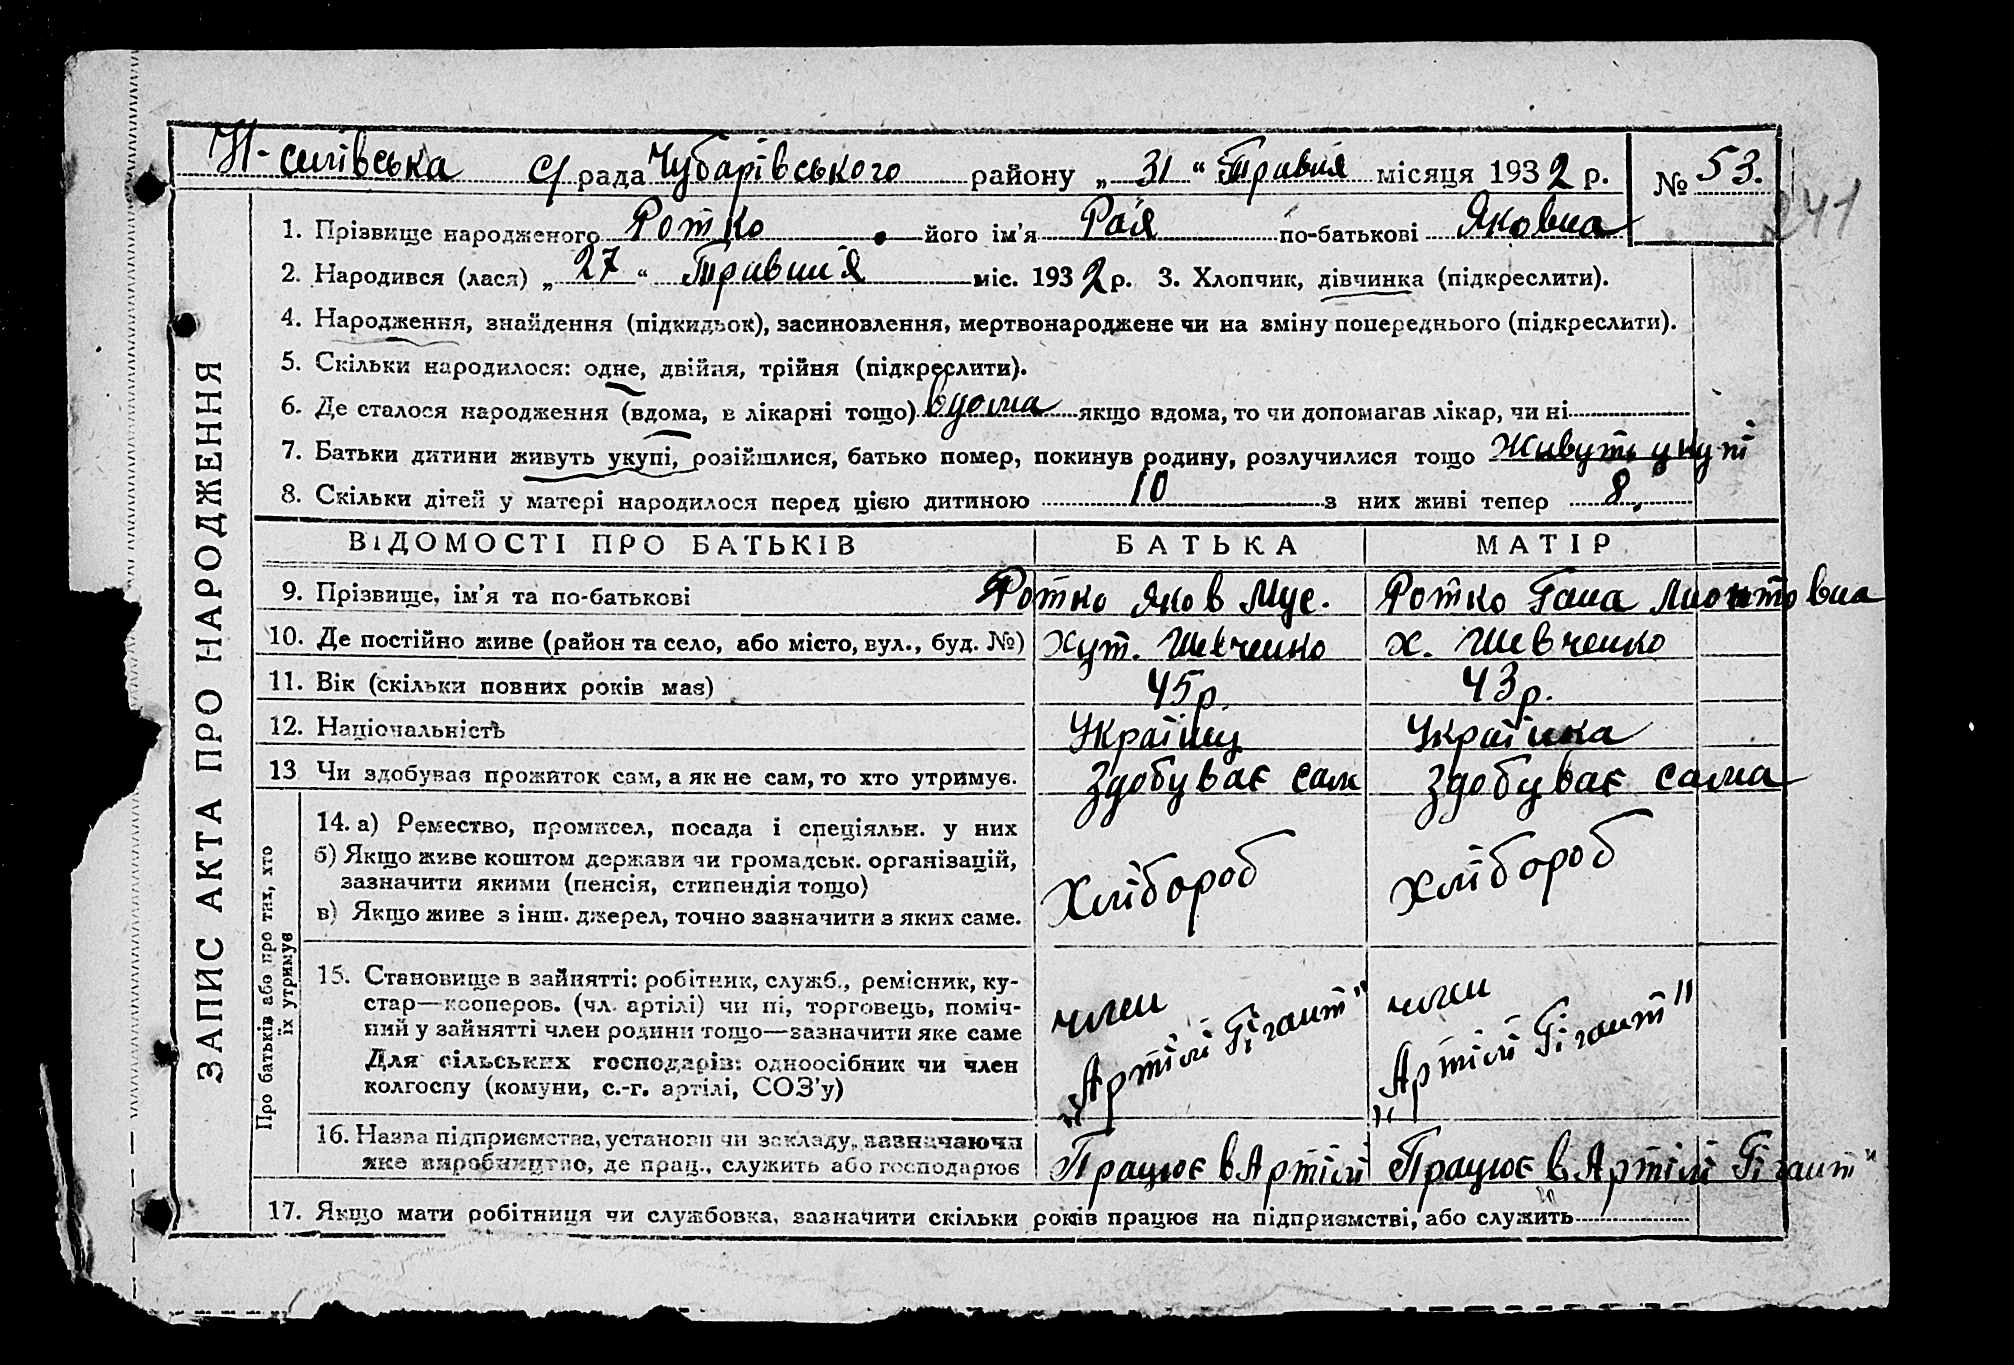 Н-силівська с/рада Чубарівського району „ 31 “ Травня місяця 1932 р. № 53.
241
1. Прізвище народженого Ротко його ім’я Рая по-батькові Яковна
2. Народився (лася) „ 27 “ Травня міс. 1932 р. 3. Хлопчик, дівчинка (підкреслити).
4. Народження, знайдення (підкидьок), засиновлення, мертвонароджене чи на зміну попереднього (підкреслити).
5. Скільки народилося: одне, двійня, трійня (підкреслити).
6. Де сталося народження (вдома, в лікарні тощо) вдома якщо вдома, то чи допомагав лікар, чи ні
7. Батьки дитини живуть укупі, розійшлися, батько помер, покинув родину, розлучилися тощо Живуть укупі
8. Скільки дітей у матері народилося перед цією дитиною 10 з них живі тепер 8.
ЗАПИС АКТА ПРО НАРОДЖЕННЯ
ВІДОМОСТІ ПРО БАТЬКІВ БАТЬКА МАТІР
9. Прізвище, ім’я та по-батькові Ротко Яков Мус. Ротко Гана
10. Де постійно живе (район та село, або місто, вул., буд. №) Хут. Шевченко х. Шевченко
11. Вік (скільки повних років має) 45р. 43р.
12. Національність Українц Українка
13 Чи здобуває прожиток сам, а як не сам, то хто утримує. Здобуває сам Здобуває сама
Про батьків або про тих, хто
їх утримує
14. а) Ремество, промисел, посада і спеціяльн. у них
б) Якщо живе коштом держави чи громадськ. організацій,
зазначити якими (пенсія, стипендія тощо)
в) Якщо живе з інш. джерел, точно зазначити з яких саме.
Хлібороб Хлібороб
15. Становище в зайнятті: робітник, служб., ремісник, ку-
стар—кооперов. (чл. артілі) чи ні, торговець, поміч-
ний у зайнятті член родини тощо—зазначити яке саме
Для сільських господарів: одноосібник чи член
колгоспу (комуни, с.-г. артілі, СОЗ’у)
член
„Артілі Гігант"
член
„Артілі Гігант"
16. Назва підприємства, установи чи закладу, зазначаючи
яке виробництво, де прац., служить або господарює
Працює в Артілі Працює в Артілі Гігант"
17. Якщо мати робітниця чи службовка, зазначити скільки років працює на підприємстві, або служить